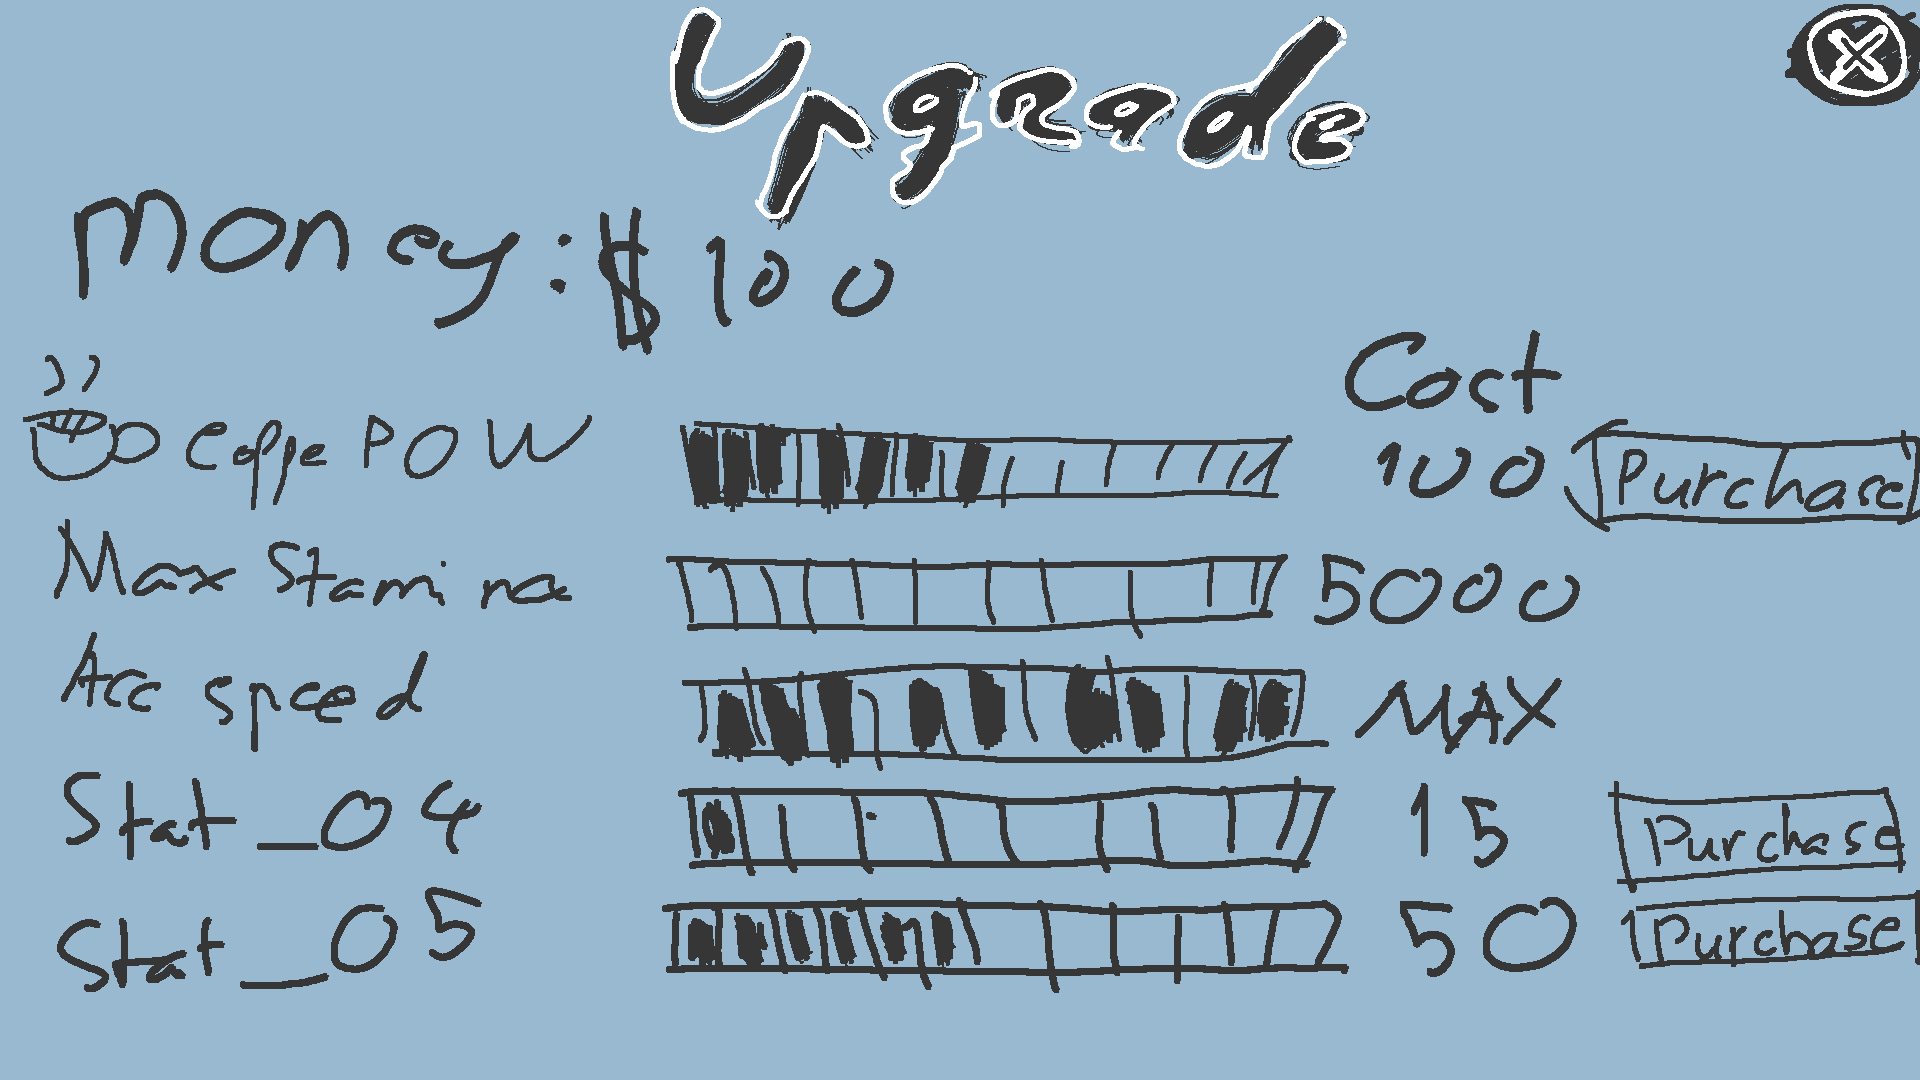 Upgrade
X
Money: $100
Cost
Coffe POW 100 Purchase
Max Stamina 5000
Acc speed MAX
Stat_04 15 Purchase
Stat_05 50 Purchase